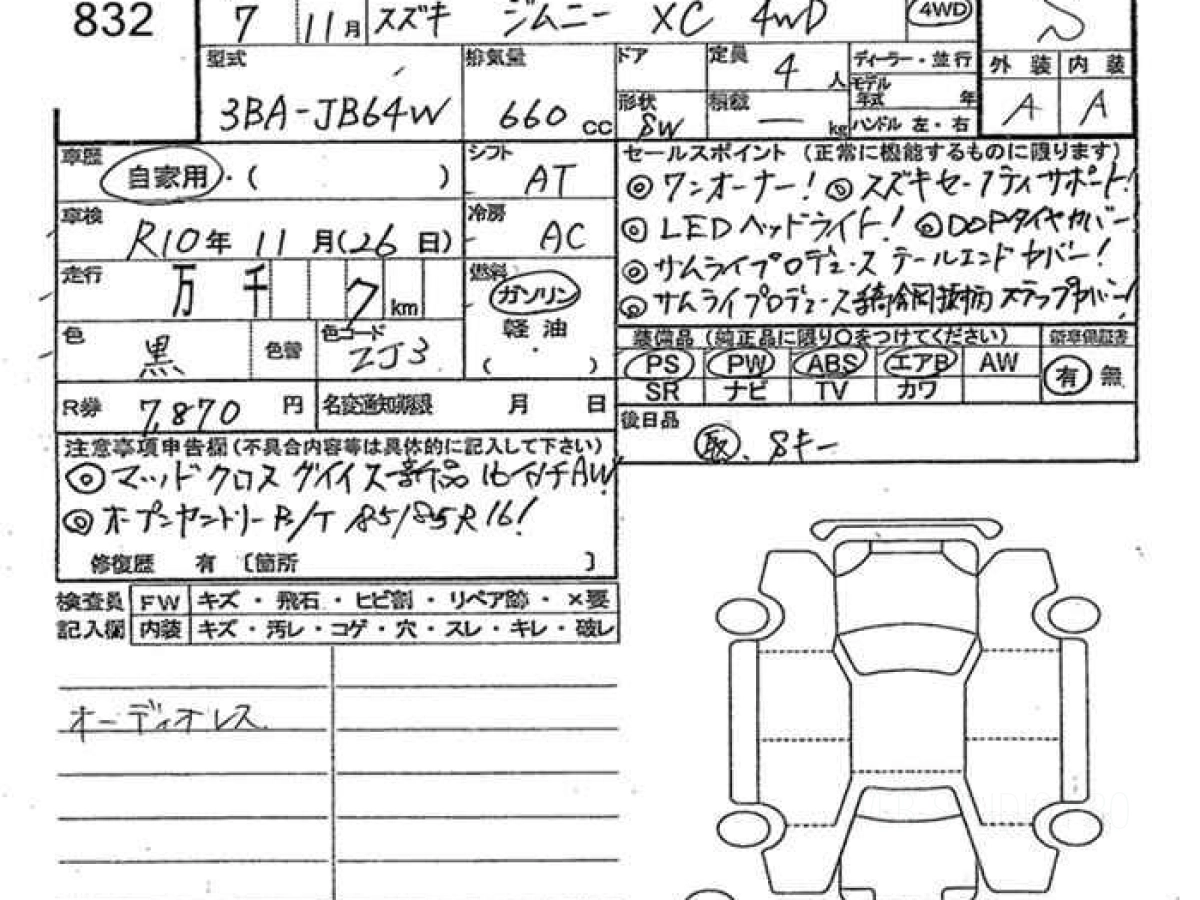 832
7 11月 スズキ ジムニー XC 4WD 4WD S
型式 排気量 ドア 定員 4人 ディーラー・並行 外装 内装
3BA-JB64W 660 cc 形状 SW 積載 — kg モデル年式 年 A A
ハンドル 左・右
車歴 自家用・( ) シフト AT
セールスポイント (正常に機能するものに限ります)
◎ワンオーナー! ◎スズキセーフティサポート!
車検 R10年 11月(26日) 冷房 AC
◎LEDヘッドライト! ◎DOPタイヤカバー
◎サムライプロデュース テールエンドカバー!
走行 万 千 7 km 燃料 ガソリン 軽油 ( )
◎サムライプロデュース ステップカバー!
色 黒 色替 色コード ZJ3
装備品 (純正品に限り○をつけてください) 新車保証書
PS PW ABS エアB AW 有 無
SR ナビ TV カワ
R券 7,870円 名変通知期限 月 日
後日品
取、Sキー
注意事項申告欄(不具合内容等は具体的に記入して下さい)
◎マッドクロスグレイス新品16インチAW
◎オープンカントリーR/T 185/85R16!
修復歴 有 〔箇所 〕
検査員 FW キズ・飛石・ヒビ割・リペア跡・×要
記入欄 内装 キズ・汚レ・コゲ・穴・スレ・キレ・破レ
オーディオレス